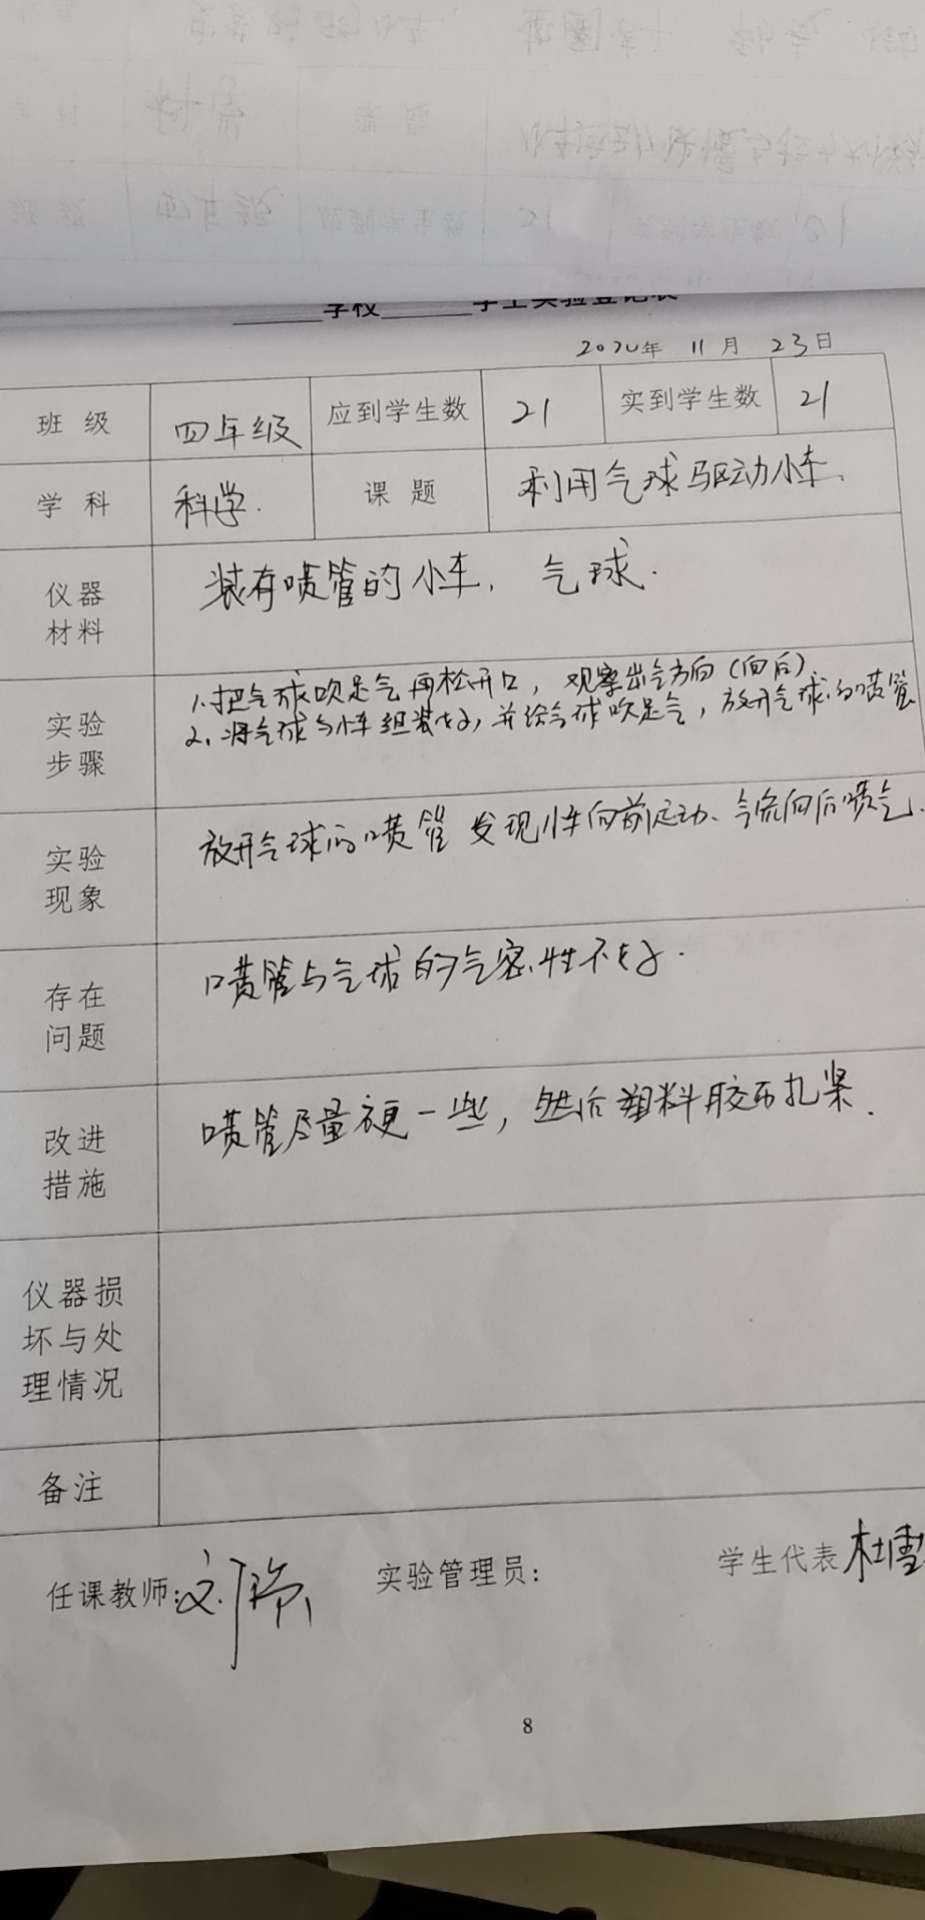 学校 学生实验登记表
2020年 11月 23日
班级 四年级 应到学生数 21 实到学生数 21
学科 科学. 课题 利用气球驱动小车.
仪器
材料
装有喷管的小车, 气球.
实验
步骤
1.把气球吹足气再松开口, 观察出气方向(向后).
2.将气球与小车组装好, 并给气球吹足气, 放开气球的喷管
实验
现象
放开气球的喷管 发现小车向前运动、气流向后喷气.
存在
问题
喷管与气球的气密性不好.
改进
措施
喷管尽量硬一些, 然后塑料胶布扎紧.
仪器损
坏与处
理情况
备注
任课教师: 实验管理员: 学生代表 杜雪
8